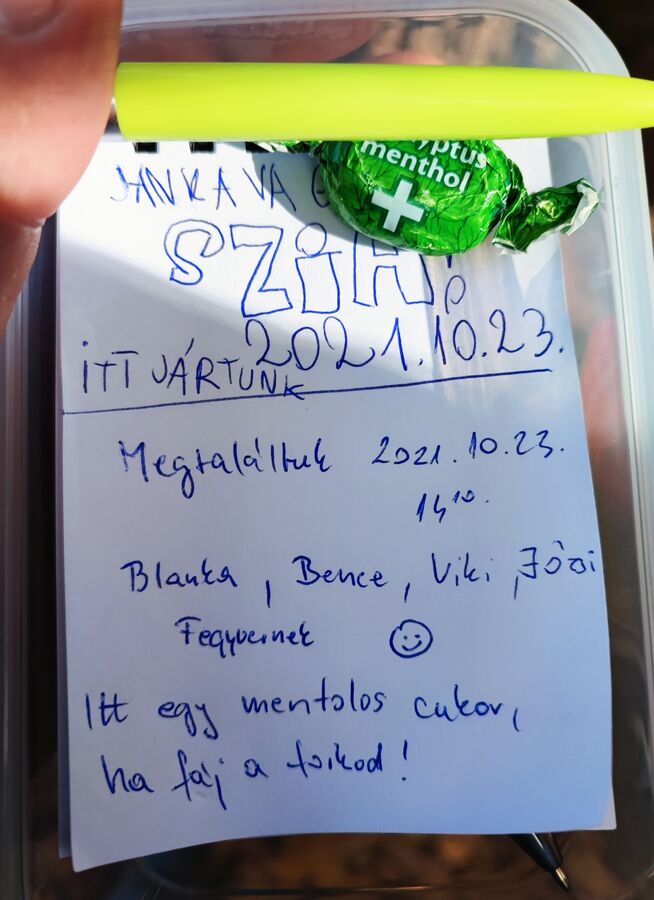 menthol
JANKA VA
SZIA!
2021.10.23.
ITT JÁRTUNK
Megtaláltuk 2021.10.23.
14¹⁰.
Blanka, Bence, Viki, Józsi
Fegyvernek
Itt egy mentolos cukor,
ha fáj a torkod!